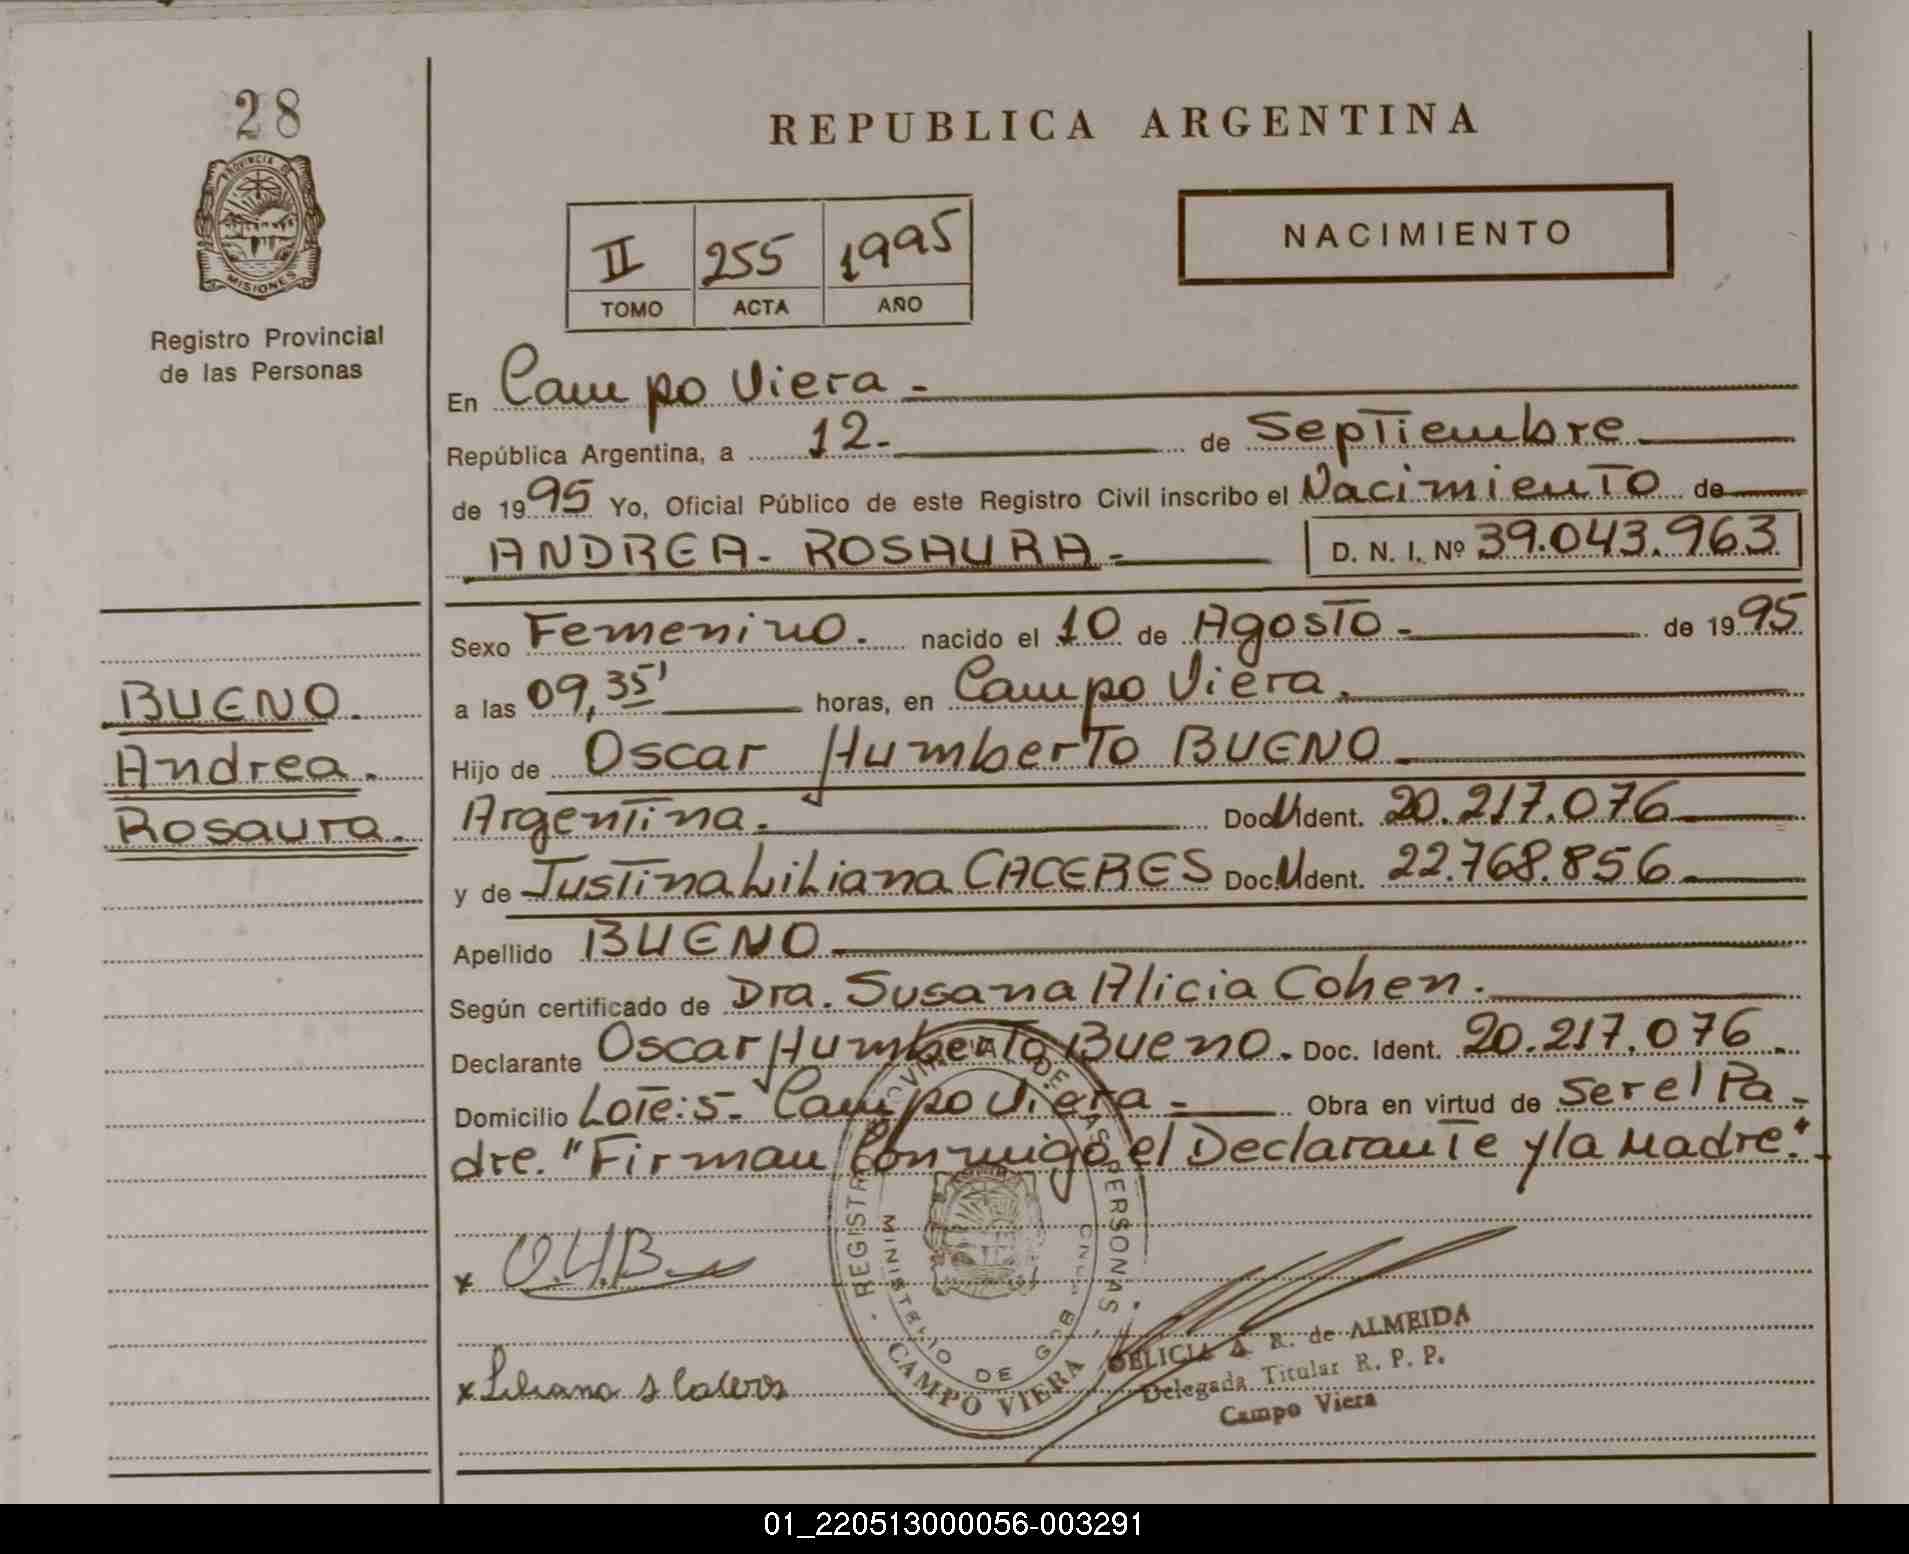 28
PROVINCIA DE
MISIONES
Registro Provincial
de las Personas
REPUBLICA ARGENTINA
II 255 1995
TOMO ACTA AÑO
NACIMIENTO
En Campo Viera -
República Argentina, a 12.- de Septiembre
de 1995 Yo, Oficial Público de este Registro Civil inscribo el Nacimiento de
ANDREA - ROSAURA.- D. N. I. Nº 39.043.963
Sexo Femenino. nacido el 10 de Agosto - de 1995
a las 09,35' horas, en Campo Viera.
BUENO.
Andrea.
Rosaura.
Hijo de Oscar Humberto BUENO
Argentina. Doc. M Ident. 20.217.076
y de Justina Liliana CACERES Doc. M Ident. 22.768.856
Apellido BUENO
Según certificado de Dra. Susana Alicia Cohen.
Declarante Oscar Humberto Bueno. Doc. Ident. 20.217.076.
Domicilio Lote: 5 - Campo Viera - Obra en virtud de ser el Pa-
dre. "Firman Conmigo el Declarante y la Madre."
x O.H.B
x Liliana
REGISTRO PROVINCIAL DE LAS PERSONAS
MINISTERIO DE GOB
CAMPO VIERA
DELICIA A. R. de ALMEIDA
Delegada Titular R. P. P.
Campo Viera
01_220513000056-003291